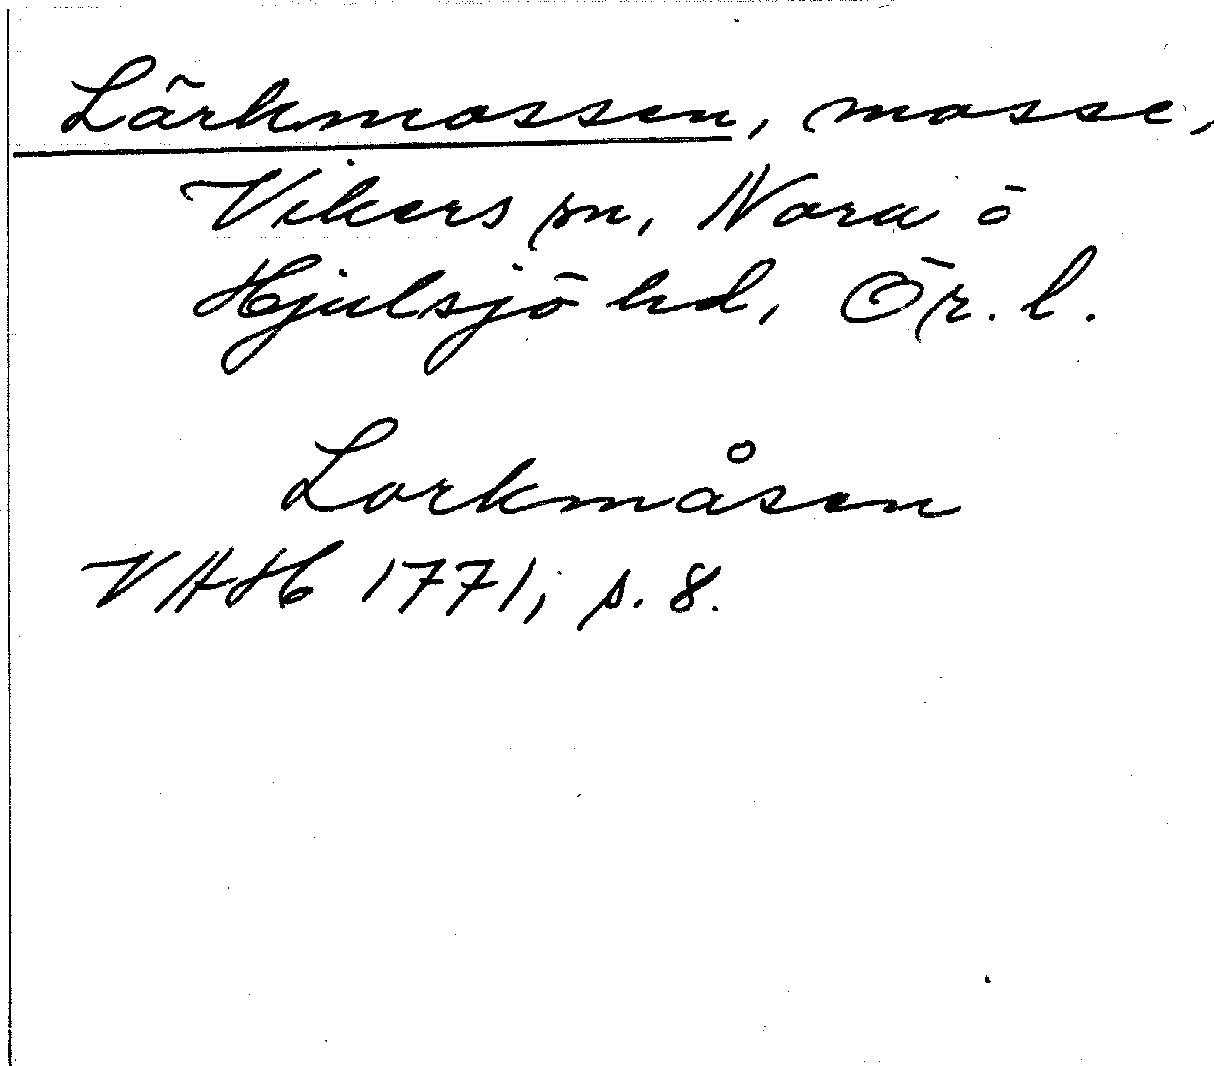 Lärkmossen, mosse,
Vikers sn, Nora ö
Hjulsjö hd, Ör. l.
Lorkmåsen
VAH 1771, s. 8.